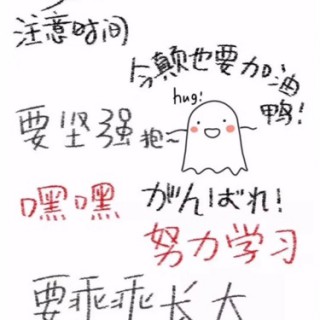 注意时间
今颠也要加油
鸭!
hug!
要坚强
抱~
嘿嘿
がんばれ!
努力学习
要乖乖长大